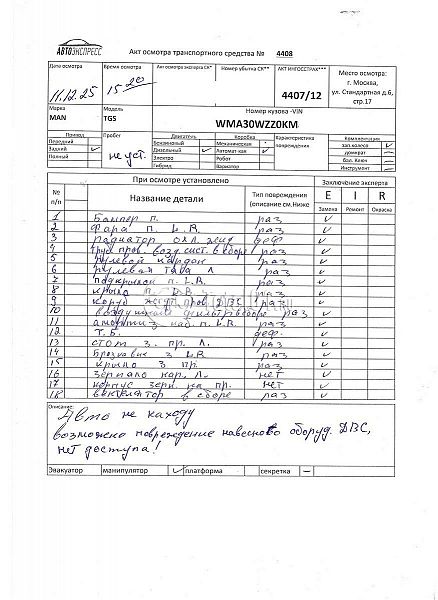 АВТОЭКСПРЕСС
Акт осмотра транспортного средства № 4408
Дата осмотра
11.12.25
Время осмотра
15.20
Акт осмотра эксперта СК*
Номер убытка СК**
АКТ ИНГОССТРАХ***
4407/12
Место осмотра:
г. Москва,
ул. Стандартная д.6,
стр.17
Марка
MAN
Модель
TGS
Номер кузова -VIN
WMA30WZZ0KM
Привод
Передний
Задний ✓
Полный
Пробег
не уст.
Двигатель
Бензиновый
Дизельный ✓
Электро
Гибрид
Коробка
Механическая
Автомат-кая ✓
Робот
Вариатор
Характеристика
повреждения
Комментарии
зап.колесо ✓
домкрат –
бал. Ключ –
Инструмент –
При осмотре установлено
Заключение эксперта
№ п/п
Название детали
Тип повреждения
(описание см.Ниже
E I R
Замена Ремонт Окраска
1 Бампер п. раз ✓
2 Фара п. L.R. раз ✓
3 радиатор охл. жид деф ✓
4 труб. пров. возд. сист. в сборе раз ✓
5 Рулевой кардан раз ✓
6 рулевая тяга Л раз ✓
7 подкрылок п. L.R. раз ✓
8 крыло п. L.R. раз ✓
9 короб жгут. пров ДВС раз ✓
10 воздушный фильтр в сборе раз ✓
11 з наб. п L.R. раз ✓
12 Т.Б. деф ✓
13 стоп з. пр. Л. раз ✓
14 Брызговик з LR раз ✓
15 крыло з пр. раз ✓
16 Зеркало нар. Л. нет ✓
17 корпус зерк. на пр. нет ✓
18 вентилятор в сборе раз ✓
Описание:
Авто не находу
возможно повреждение навесного оборуд. ДВС,
нет доступа!
Эвакуатор манипулятор ✓ платформа секретка –